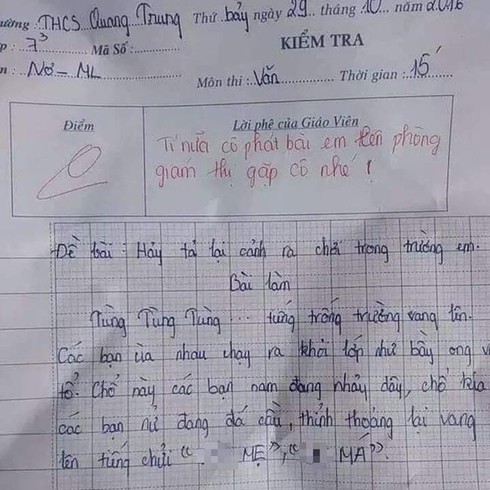 ường : THCS Quang Trung Thứ bảy ngày 29 tháng 10 năm 2016
p : 7³ Mã Số :
n : Nơ - ML
KIỂM TRA
Môn thi : Văn Thời gian : 15'
Điểm
Lời phê của Giáo Viên
0
Tí nữa cô phát bài em lên phòng
giám thị gặp cô nhé !
Đề bài : Hảy tả lại cảnh ra chơi trong trường em.
Bài làm
Tùng Tùng Tùng ... tiếng trống trường vang lên.
Các bạn ùa nhau chạy ra khỏi lớp như bầy ong v
tổ. Chổ này các bạn nam đang nhảy dây, chổ kia
các bạn nử đang đá cầu, thỉnh thoảng lại vang
lên tiếng chửi " MẸ", " MÁ".